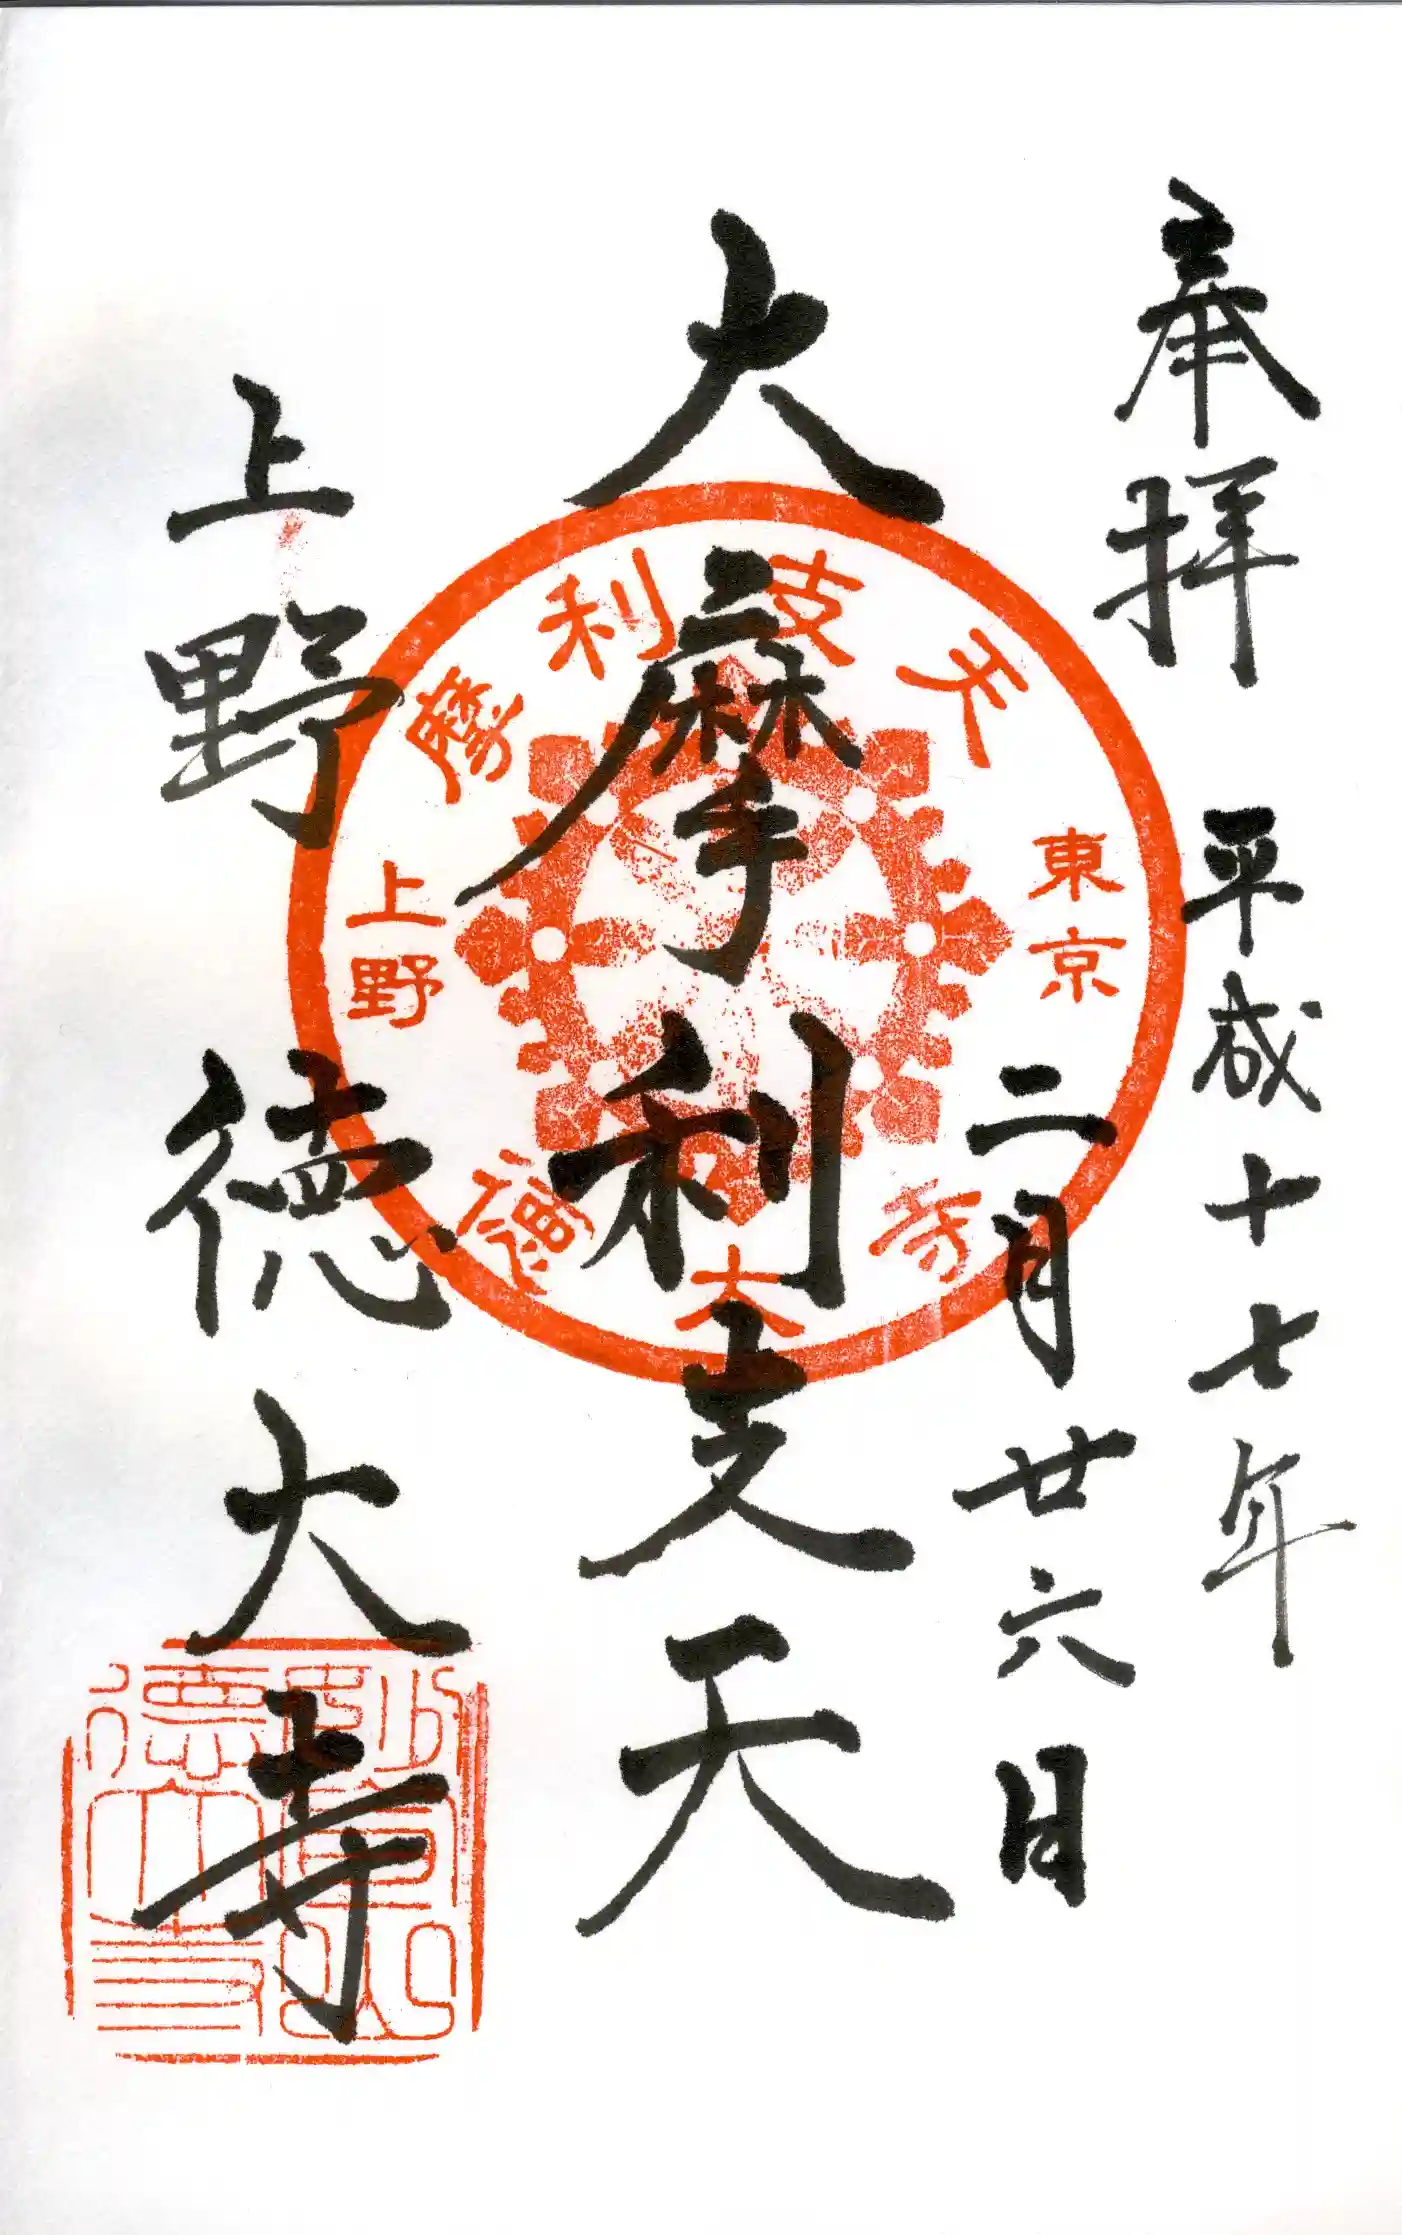 奉拝
平成十七年
二月廿六日
大摩利支天
上野徳大寺
摩利支天
東京
上野
徳大寺